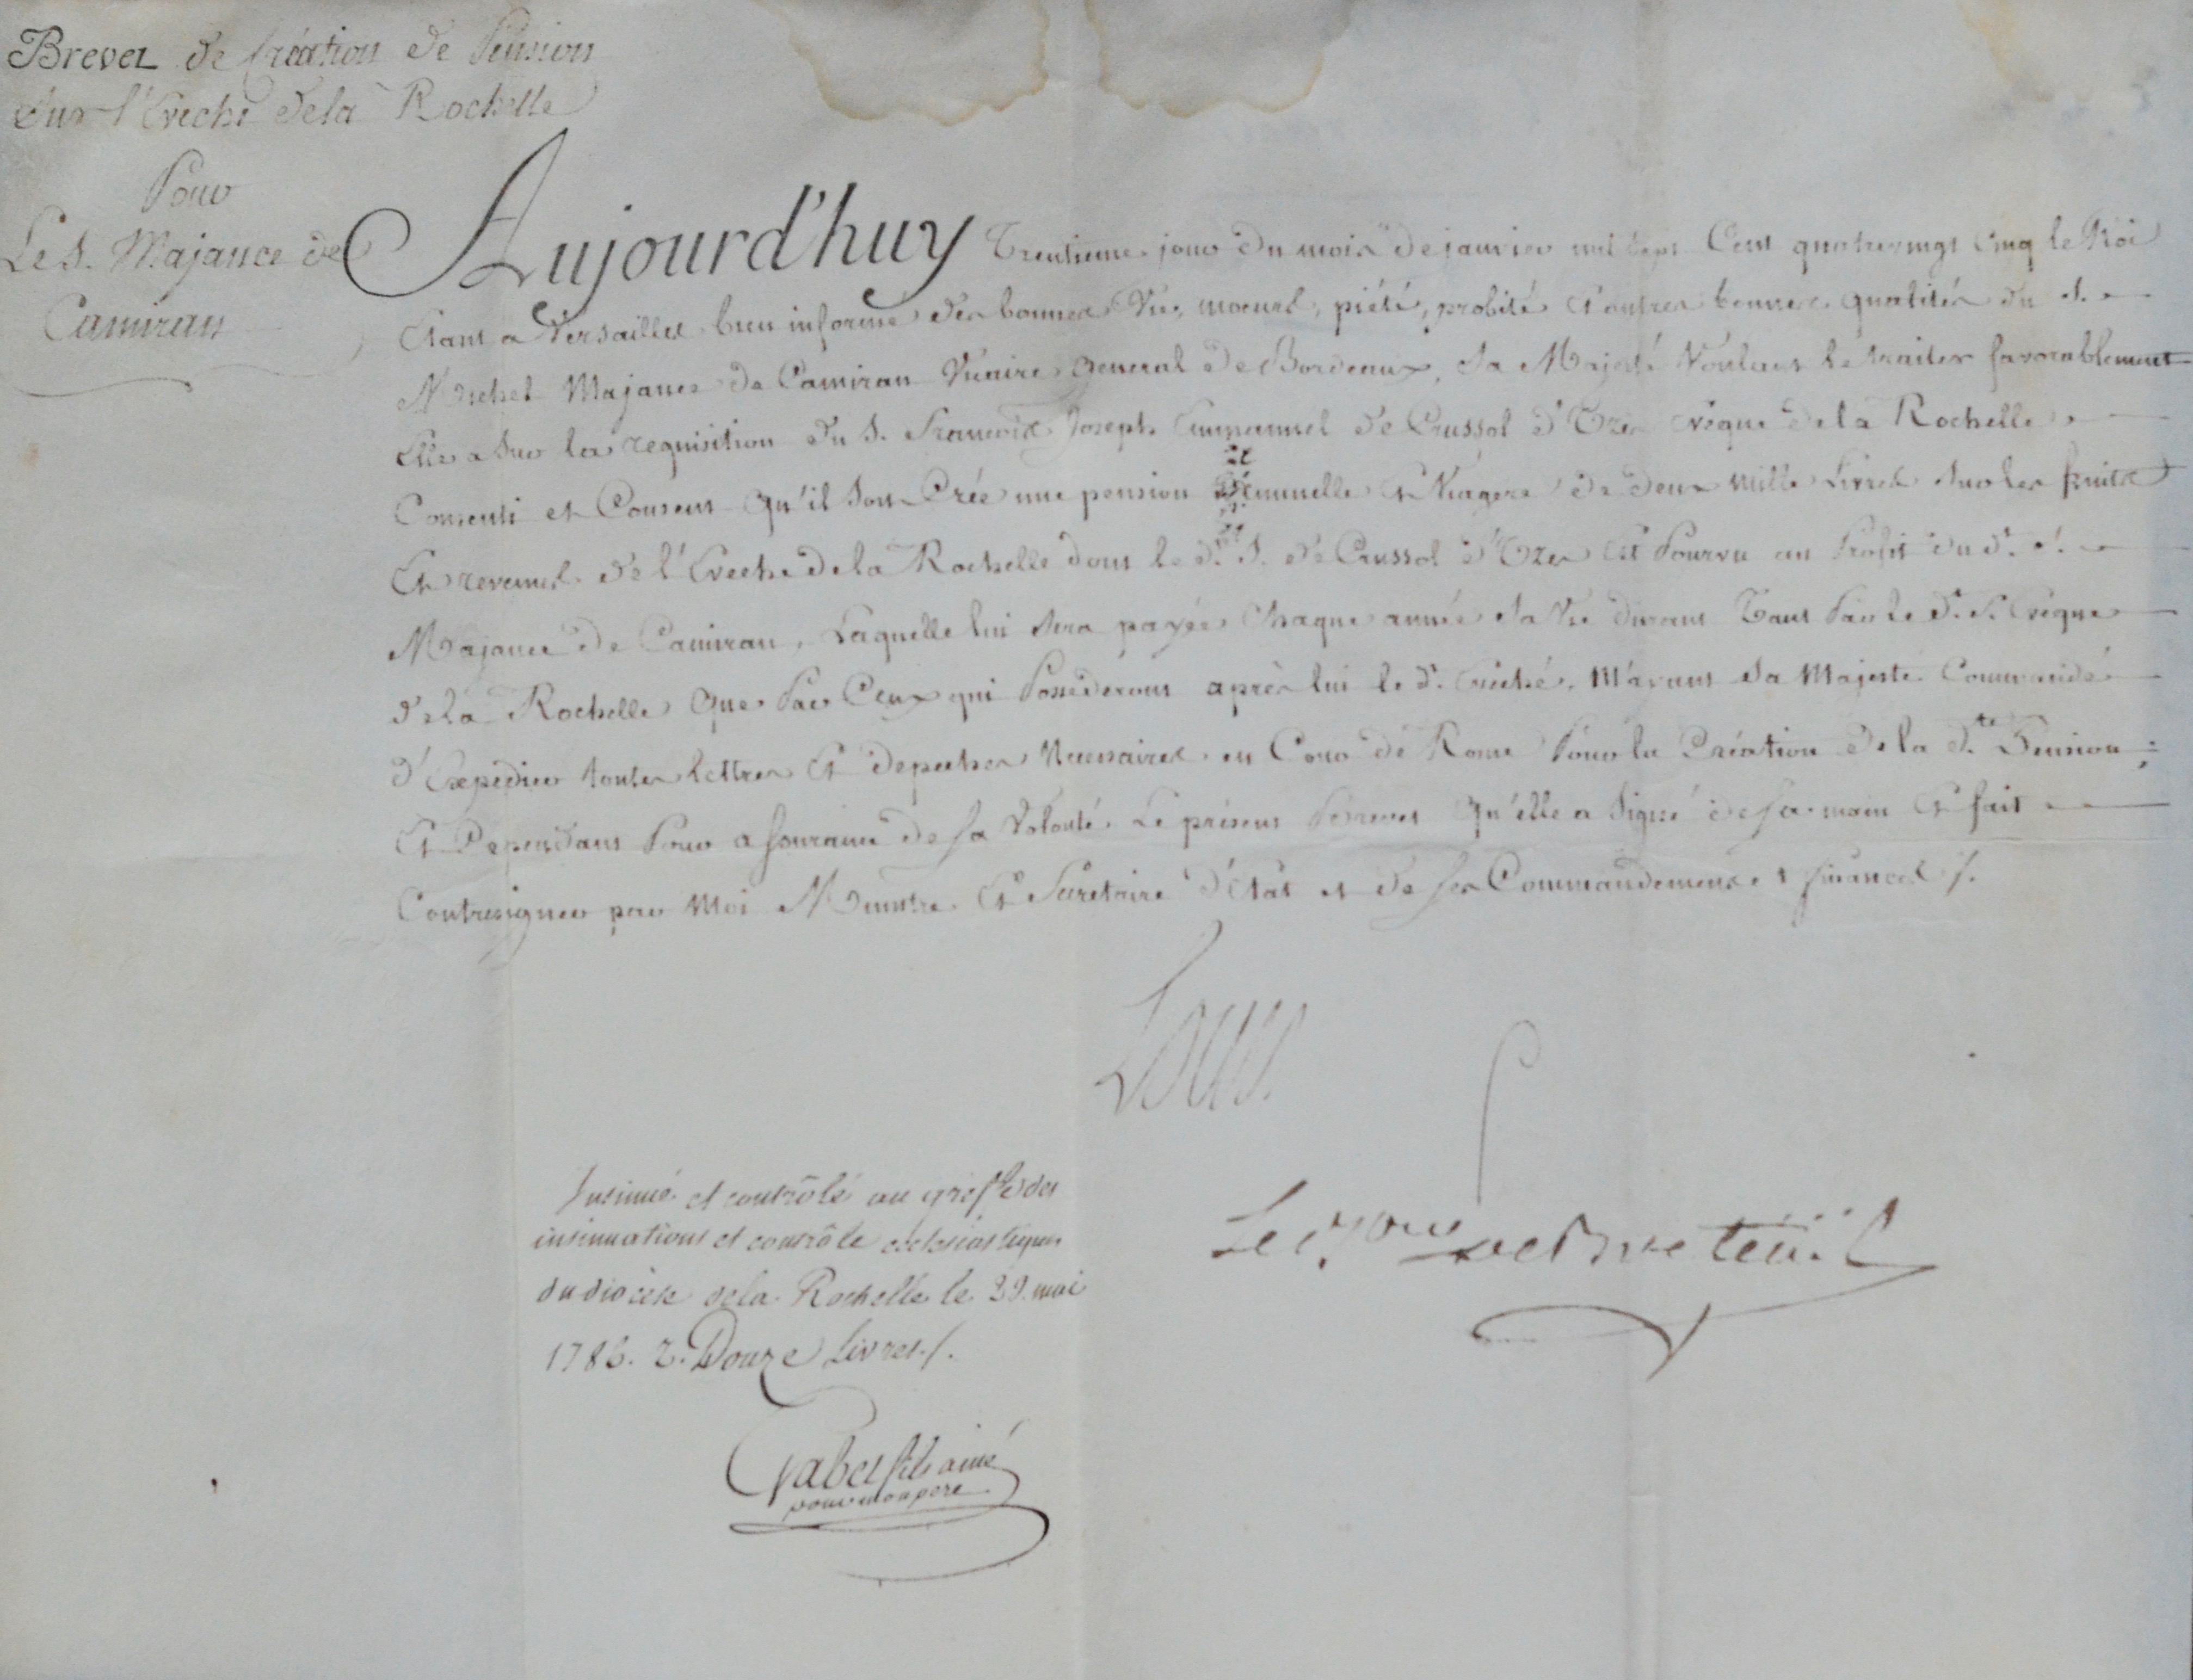 Brevet de Création de Pension
sur l'Eveché dela Rochelle
Pour
Le S. Majance de
Camiran
Aujourd'huy Trentieme jour du mois de janvier mil sept Cent quatrevingt cinq le Roi
Etant a Versailles bien informé des bonnes Vie, moeurs, piété, probité et autres bonnes qualités du S.
Michel Majance de Camiran Vicaire General de Bordeaux, Sa Majesté Voulant le traiter favorablement
Elle a Sur la requisition du S. Francois Joseph Emmanuel de Crussol d'Uzes Evêque dela Rochelle
Consenti et Consent qu'il Soit Créé une pension annuelle et Viagere de deux Mille Livres Sur les fruits
Et revenus de l'Eveché dela Rochelle dont le d. S. de Crussol d'Uzes est Pourvu au Profit du d. S.
Majance de Camiran, Laquelle lui Sera payée Chaque année Sa Vie durant Tant Par le d. S. Evêque
dela Rochelle Que Par Ceux qui Possederont après lui le d. Evêché, M'ayant Sa Majesté Commandé
d'Expedier toutes lettres Et depeches Necessaires en Cour de Rome Pour la Création de la d.te Pension;
Et Cependant Pour assurance de sa Volonté Le présent Brevet Qu'elle a Signé de sa main Et fait
Contresigner par Moi Ministre Et Secretaire d'Etat et de ses Commandemens et finances /.
Louis
Le B.on de Breteüil
Insinué et contrôlé au greffe des
insinuations et contrôle ecclesiastiques
du diocese dela Rochelle le 29. mai
1785. r. Douze Livres /.
fils ainé
pour mon pere